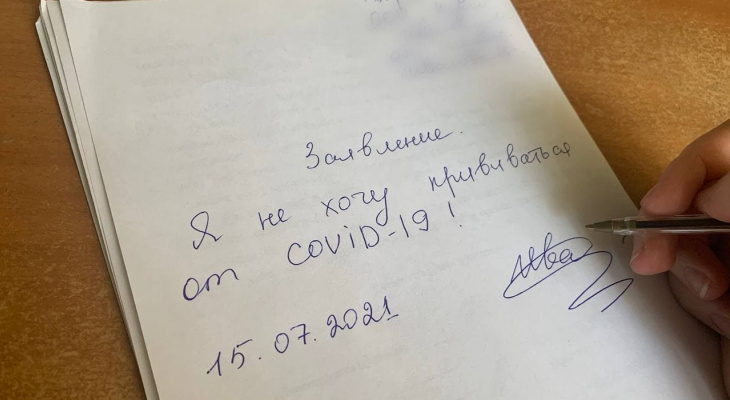 Заявление.
Я не хочу прививаться
от COVID-19!
15.07.2021